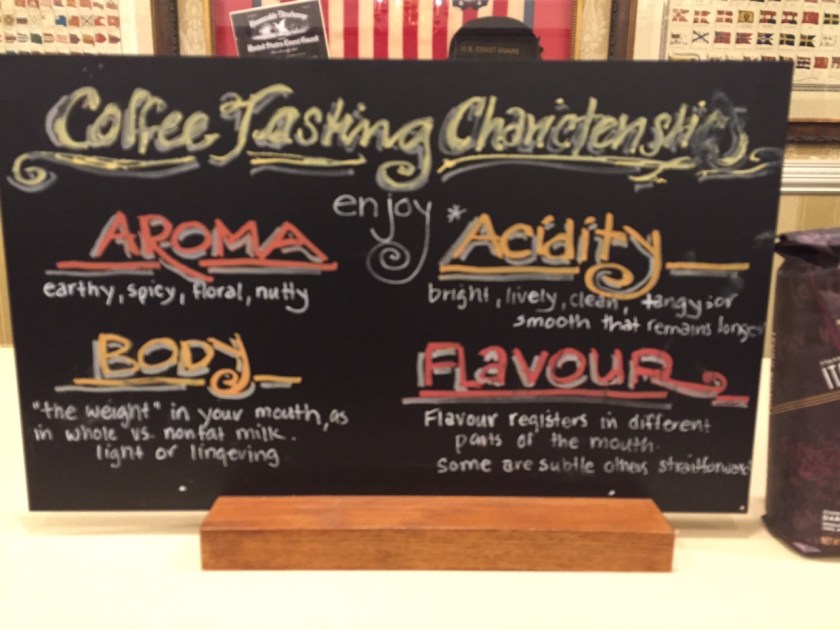 Coffee Tasting Charictenstics
enjoy
AROMA
earthy, spicy, floral, nutty
*Acidity
bright, lively, clean, tangy;or
smooth that remains longer
BODY
"the weight" in your mouth, as
in whole vs. nonfat milk.
light or lingeving
FLaVOUR
Flavour registers in different
parts of the mouth.
Some are subtle others straitforward
U.S. COAST GUARD
United States Coast Guard